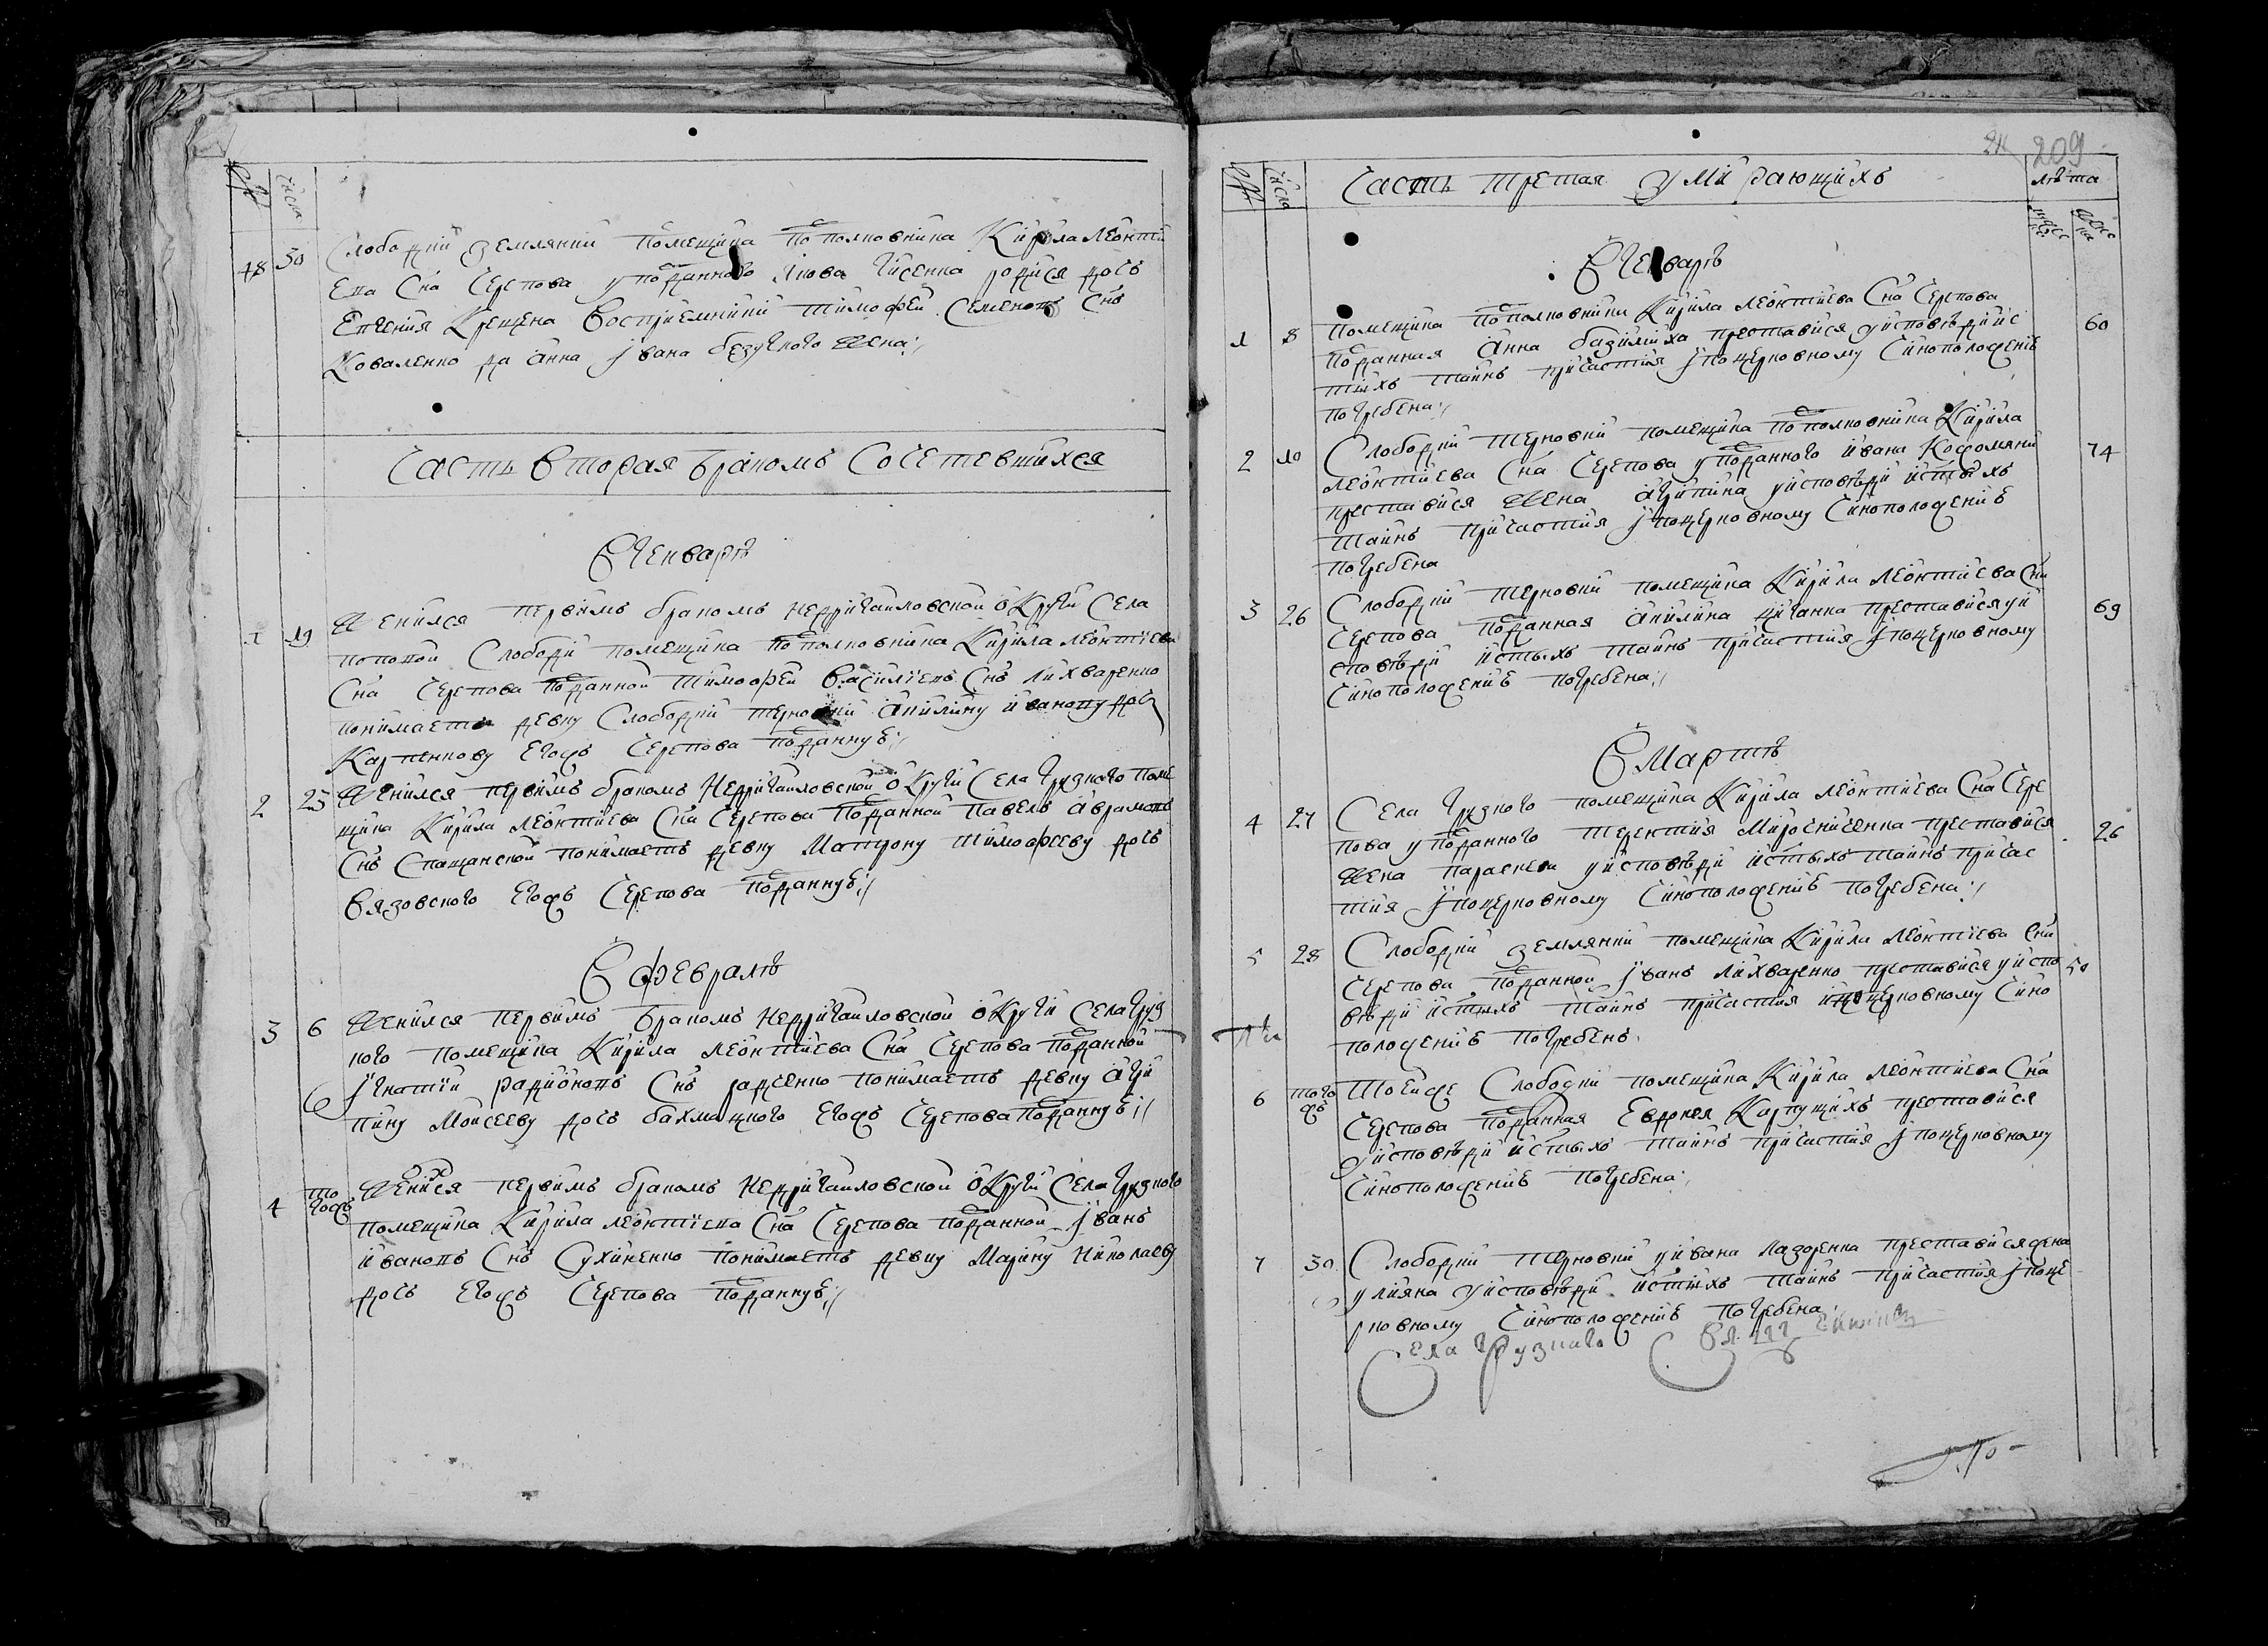 числа
48 30 Слободки землянки помещика подполковника Кирила Леонти
ева сна Черепова у подданного Якова родися дочь
Евгения крещена восприемники Тимофей Семеновъ снъ
Коваленко да Анна Ивана жена
Часть вторая браком сочетевшихся
Въ генваре
1 19 Женился первимъ бракомъ недригайловской округи села
поповой слободи помещика подполковника Кирила Леонтиева
сна Черепова подданной Тимофей Василиевъ снъ Лихваренко
понимаетъ девку слободки терновки Акилину Иванову дочъ
Карпенкову егожъ Черепова подданную
2 25 Женился первимъ бракомъ недригайловской округи села грузного поме
щика Кирила Леонтиева сна Черепова подданной Павелъ Аврамовъ
снъ Спащанской понимаетъ девку Матрону Тимофееву дочъ
Вязовского егожъ Черепова подданную
Въ феврале
3 6 Женился первимъ бракомъ недригайловской округи села груз
ного помещика Кирила Леонтиева сна Черепова подданной
Игнатий Радионовъ снъ Радченко понимаетъ девку Агри
пину Моисееву дочъ Бахмацкого егожъ Черепова подданную
4 тогожъ Женися первимъ бракомъ недригайловской округи села грузного
помещика Кирила Леонтиева сна Черепова подданной Иванъ
Ивановъ снъ Сухиненко понимаетъ девку Марину Николаеву
дочъ егожъ Черепова подданную
209
числа Часть третая умирающихъ лета
Въ генваре
1 8 Помещика подполковника Кирила Леонтиева сна Черепова
подданная Анна преставися у исповеди и с
тихъ таинъ причастия и по церковному чиноположению 60
погребена
2 10 Слободки терновки помещика подполковника Кирила
Леонтиева сна Черепова у подданного Ивана 74
преставися жена Агрипина у исповеди и стыхъ
таинъ причастия и по церковному чиноположению
погребена
3 26 Слободки терновки помещика Кирила Леонтиева сна
Черепова подданная Акилина циганка преставися у и 69
споведи и стыхъ таинъ причастия и по церковному
чиноположению погребена
Въ марте
4 27 Села грузного помещика Кирила Леонтиева сна Чере
пова у подданного Терентия Мирошниченка преставися 26
жена Параскева у исповеди и стыхъ таинъ причас
тия и по церковному чиноположению погребена
5 28 Слободки землянки помещика Кирила Леонтиева сна
Черепова подданной Иванъ Лихваренко преставися у испо 50
веди и стыхъ таинъ причастия и по церковному чино
положению погребенъ
6 тогожъ Тоейже слободки помещика Кирила Леонтиева сна
Черепова подданная преставися
у исповеди и стыхъ таинъ причастия и по церковному
чиноположению погребена
7 30 Слободки терновки у Ивана Лазоренка преставися жена
Улияна у исповеди и стихъ таинъ причастия и по це
рковному чиноположению погребена
Села Грузнаго